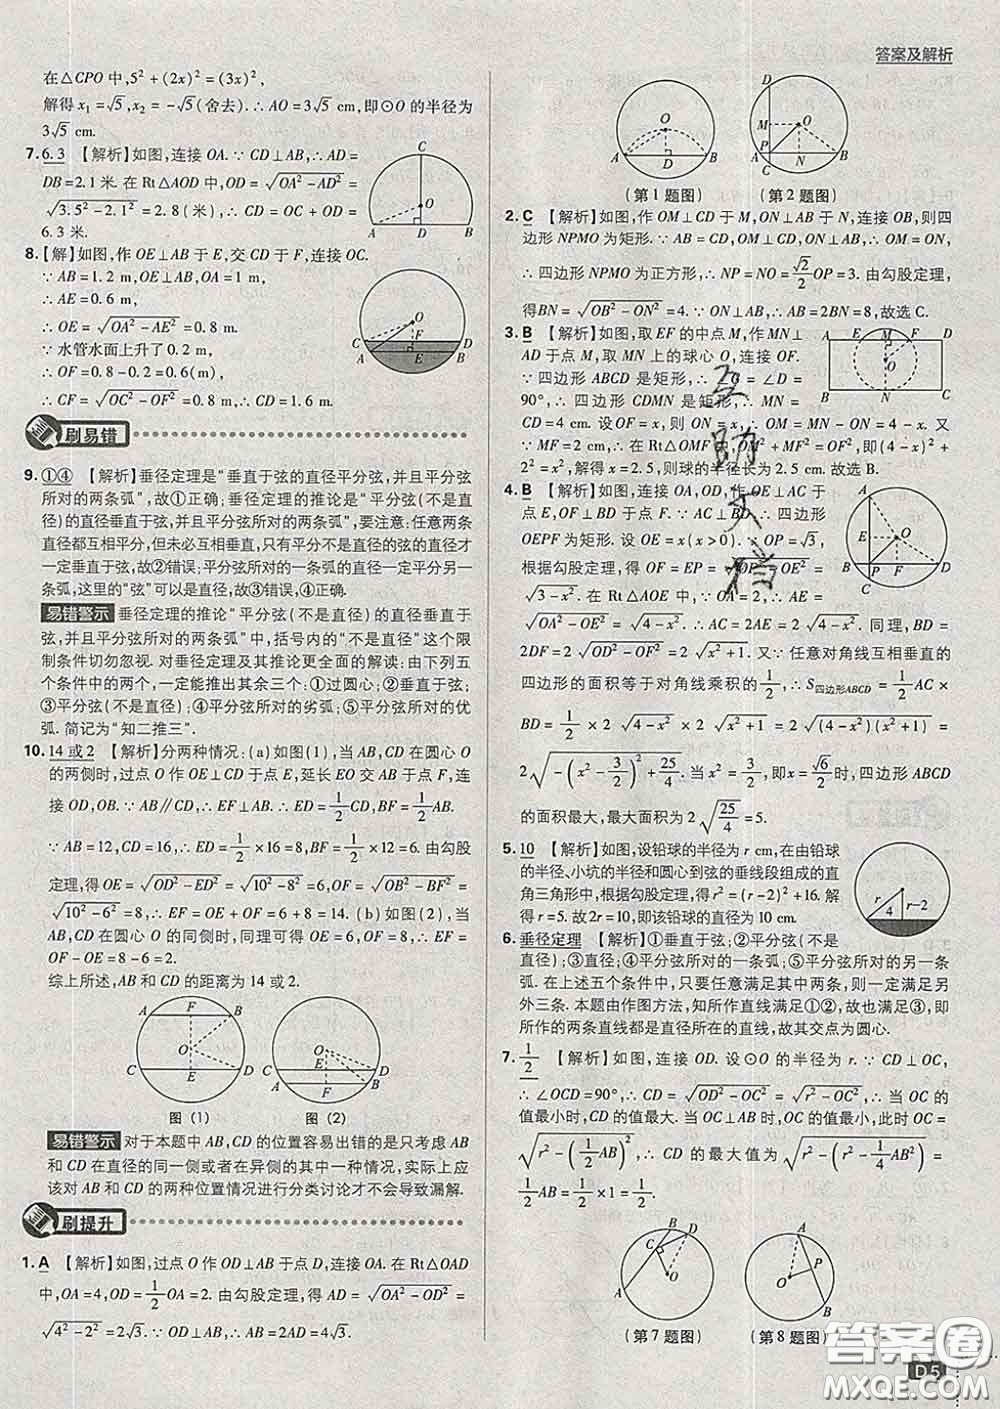 答案及解析
在△CPO中,5²+(2x)²=(3x)²,
解得x₁=√5,x₂=-√5(舍去).∴AO=3√5 cm,即⊙O的半径为
3√5 cm.
7. 6.3 【解析】如图,连接OA.∵CD⊥AB,∴AD=
DB=2.1米.在Rt△AOD中,OD=√(OA²-AD²)
=√(3.5²-2.1²)=2.8(米),∴CD=OC+OD=
6.3米.
8.【解】如图,作OE⊥AB于E,交CD于F,连接OC.
∵AB=1.2 m,OE⊥AB,OA=1 m,
∴AE=0.6 m,
∴OE=√(OA²-AE²)=0.8 m.
∵水管水面上升了0.2 m,
∴OF=0.8-0.2=0.6(m),
∴CF=√(OC²-OF²)=0.8 m,∴CD=1.6 m.
刷易错
9. ①④ 【解析】垂径定理是“垂直于弦的直径平分弦,并且平分弦
所对的两条弧”,故①正确;垂径定理的推论是“平分弦(不是直
径)的直径垂直于弦,并且平分弦所对的两条弧”,要注意:任意两条
直径都互相平分,但未必互相垂直,只有平分不是直径的弦的直径才
一定垂直于弦,故②错误;平分弦所对的一条弧的直径一定平分另一
条弧,这里的“弦”可以是直径,故③错误,④正确.
易错警示 垂径定理的推论“平分弦(不是直径)的直径垂直于
弦,并且平分弦所对的两条弧”中,括号内的“不是直径”这个限
制条件切勿忽视.对垂径定理及其推论更全面的解读:由下列五
个条件中的两个,一定能推出其余三个:①过圆心;②垂直于弦;
③平分弦(不是直径);④平分弦所对的劣弧;⑤平分弦所对的优
弧.简记为“知二推三”.
10. 14或2 【解析】分两种情况:(a)如图(1),当AB,CD在圆心O
的两侧时,过点O作OE⊥CD于点E,延长EO交AB于点F,连
接OD,OB.∵AB∥CD,∴EF⊥AB.∴ED=1/2CD,BF=1/2AB.
∵AB=12,CD=16,∴ED=1/2×16=8,BF=1/2×12=6.由勾股
定理,得OE=√(OD²-ED²)=√(10²-8²)=6,OF=√(OB²-BF²)=
√(10²-6²)=8,∴EF=OE+OF=6+8=14.(b)如图(2),当
AB,CD在圆心O的同侧时,同理可得OE=6,OF=8,∴EF=
OF-OE=8-6=2.
综上所述,AB和CD的距离为14或2.
图(1) 图(2)
易错警示 对于本题中AB,CD的位置容易出错的是只考虑AB
和CD在直径的同一侧或者在异侧的其中一种情况,实际上应
该对AB和CD的两种位置情况进行分类讨论才不会导致漏解.
刷提升
1. A 【解析】如图,过点O作OD⊥AB于点D,连接OA.在Rt△OAD
中,OA=4,OD=1/2OA=2.由勾股定理,得AD=√(OA²-OD²)
=√(4²-2²)=2√3.∵OD⊥AB,∴AB=2AD=4√3.
(第1题图) (第2题图)
2. C 【解析】如图,作OM⊥CD于M,ON⊥AB于N,连接OB,则四
边形NPMO为矩形.∵AB=CD,OM⊥CD,ON⊥AB,∴OM=ON,
∴四边形NPMO为正方形,∴NP=NO=√2/2OP=3.由勾股定理,
得BN=√(OB²-ON²)=4.∵ON⊥AB,∴AB=2BN=8,故选C.
3. B 【解析】如图,取EF的中点M,作MN⊥
AD于点M,取MN上的球心O,连接OF.
∵四边形ABCD是矩形,∴∠C=∠D=
90°,∴四边形CDMN是矩形,∴MN=
CD=4 cm.设OF=x cm,则ON=OF,∴OM=MN-ON=4-x.又
∵MF=2 cm,∴在Rt△OMF中,OM²+MF²=OF²,即(4-
x)²+2²=x²,解得x=2.5,则球的半径长为2.5 cm.故选B.
4. B 【解析】如图,连接OA,OD,作OE⊥AC于
点E,OF⊥BD于点F.∵AC⊥BD,∴四边形
OEPF为矩形.设OE=x(x>0).∵OP=√3,
根据勾股定理,得OF=EP=√(OP²-OE²)=
√(3-x²).在Rt△AOE中,∵OA=2,∴AE=
√(OA²-OE²)=√(4-x²),∴AC=2AE=2√(4-x²).同理,BD=
2DF=2√(OD²-OF²)=2√(x²+1).又∵任意对角线互相垂直的
四边形的面积等于对角线乘积的1/2,∴S四边形ABCD=1/2AC×
BD=1/2×2√(4-x²)×2√(x²+1)=2√((4-x²)(x²+1))=
2√(-(x²-3/2)²+25/4).当x²=3/2,即x=√6/2时,四边形ABCD
的面积最大,最大面积为2√(25/4)=5.
5. 10 【解析】如图,设铅球的半径为r cm,在由铅球
的半径、小坑的半径和圆心到弦的垂线段组成的直
角三角形中,根据勾股定理,得r²=(r-2)²+16.解
得r=5.故2r=10,即该铅球的直径为10 cm.
6. 垂径定理 【解析】①垂直于弦;②平分弦(不是
直径);③直径;④平分弦所对的一条弧;⑤平分弦所对的另一条
弧.在上述五个条件中,只要任意满足其中两个条件,就能满足
另外三条.本题由作图方法,知所作直线满足①②,故也满足③,即
所作的两条直线都是直径所在的直线,故其交点为圆心.
7. 1/2 【解析】如图,连接OD.设⊙O的半径为r.∵CD⊥OC,
∴∠OCD=90°,∴CD=√(OD²-OC²)=√(r²-OC²),∴当OC的
值最小时,CD的值最大.当OC⊥AB时,OC的值最小,此时OC=
√(r²-(1/2AB)²),∴CD的最大值为√(r²-(r²-1/4AB²))=
1/2AB=1/2×1=1/2.
(第7题图) (第8题图)
D5
答案圈
MXQE.COM